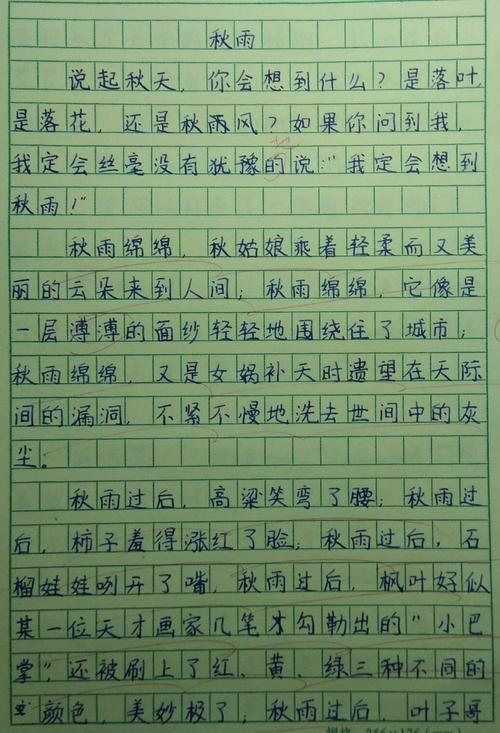 秋雨
说起秋天，你会想到什么？是落叶，
是落花，还是秋雨风？如果你问到我，
我定会丝毫没有犹豫的说：“我定会想到
秋雨！”
秋雨绵绵，秋姑娘乘着轻柔而又美
丽的云朵来到人间；秋雨绵绵，它像是
一层溥溥的面纱轻轻地围绕住了城市；
秋雨绵绵，又是女娲补天时遗望在天际
间的漏洞，不紧不慢地洗去世间中的灰
尘。
秋雨过后，高粱笑弯了腰；秋雨过
后，柿子羞得涨红了脸；秋雨过后，石
榴娃娃咧开了嘴，秋雨过后，枫叶好似
某一位天才画家几笔才勾勒出的“小巴
掌”，还被刷上了红、黄、绿三种不同的
颜色，美妙极了；秋雨过后，叶子哥